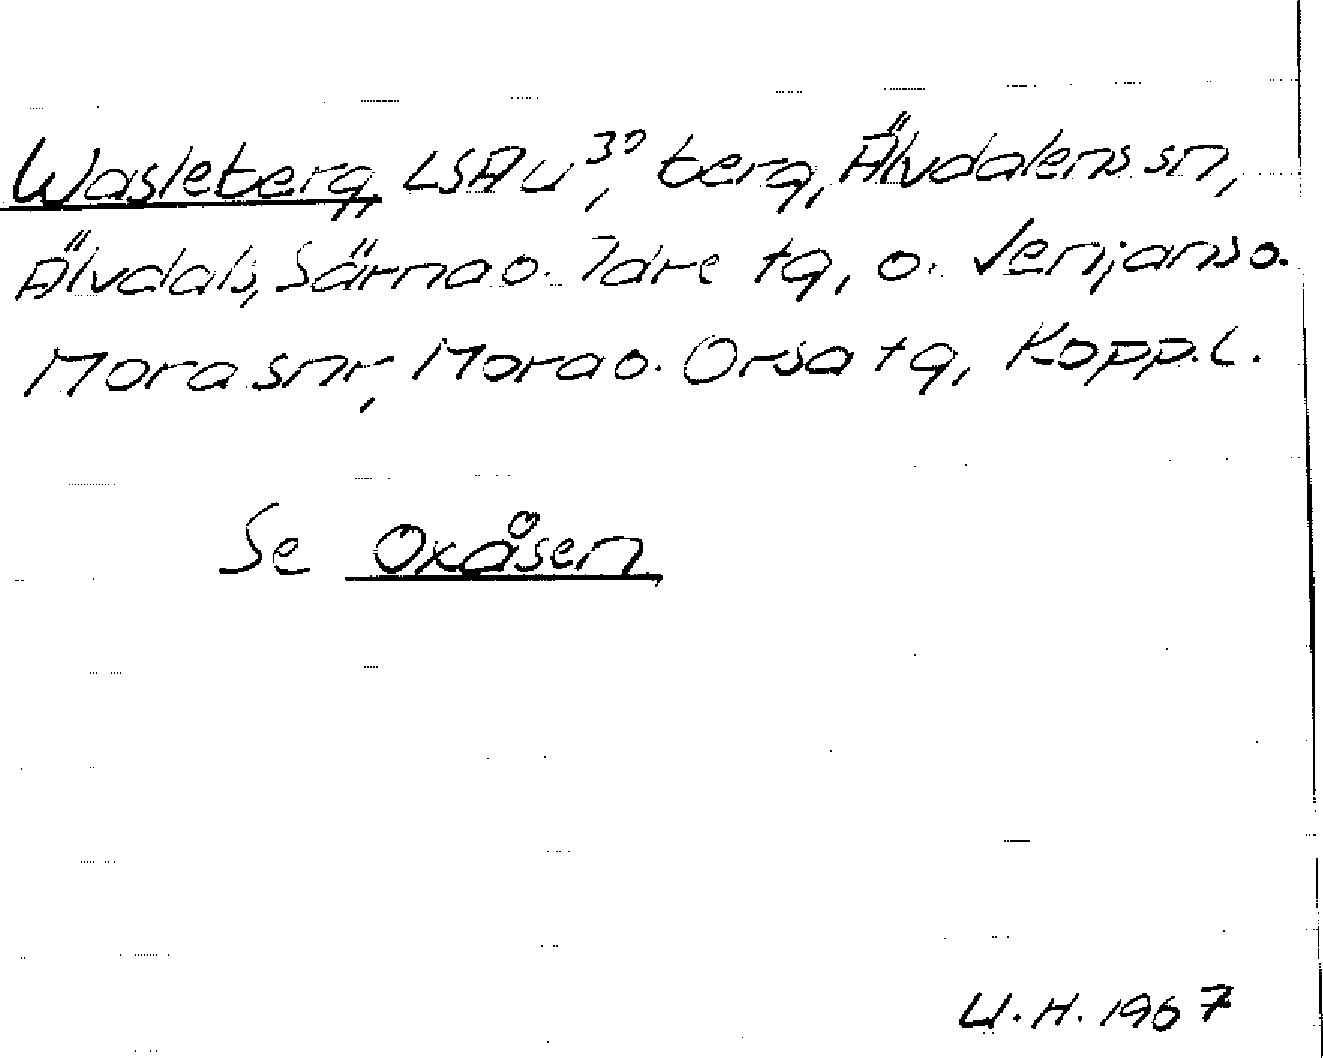 Wasleberg, LSA U³⁰, berg, Älvdalens sn,
Älvdals, Särna o. Idre tg, o. Venjans o.
Mora snr, Mora o. Orsa tg, Kopp. l.
Se Oxåsen
U.H. 1967